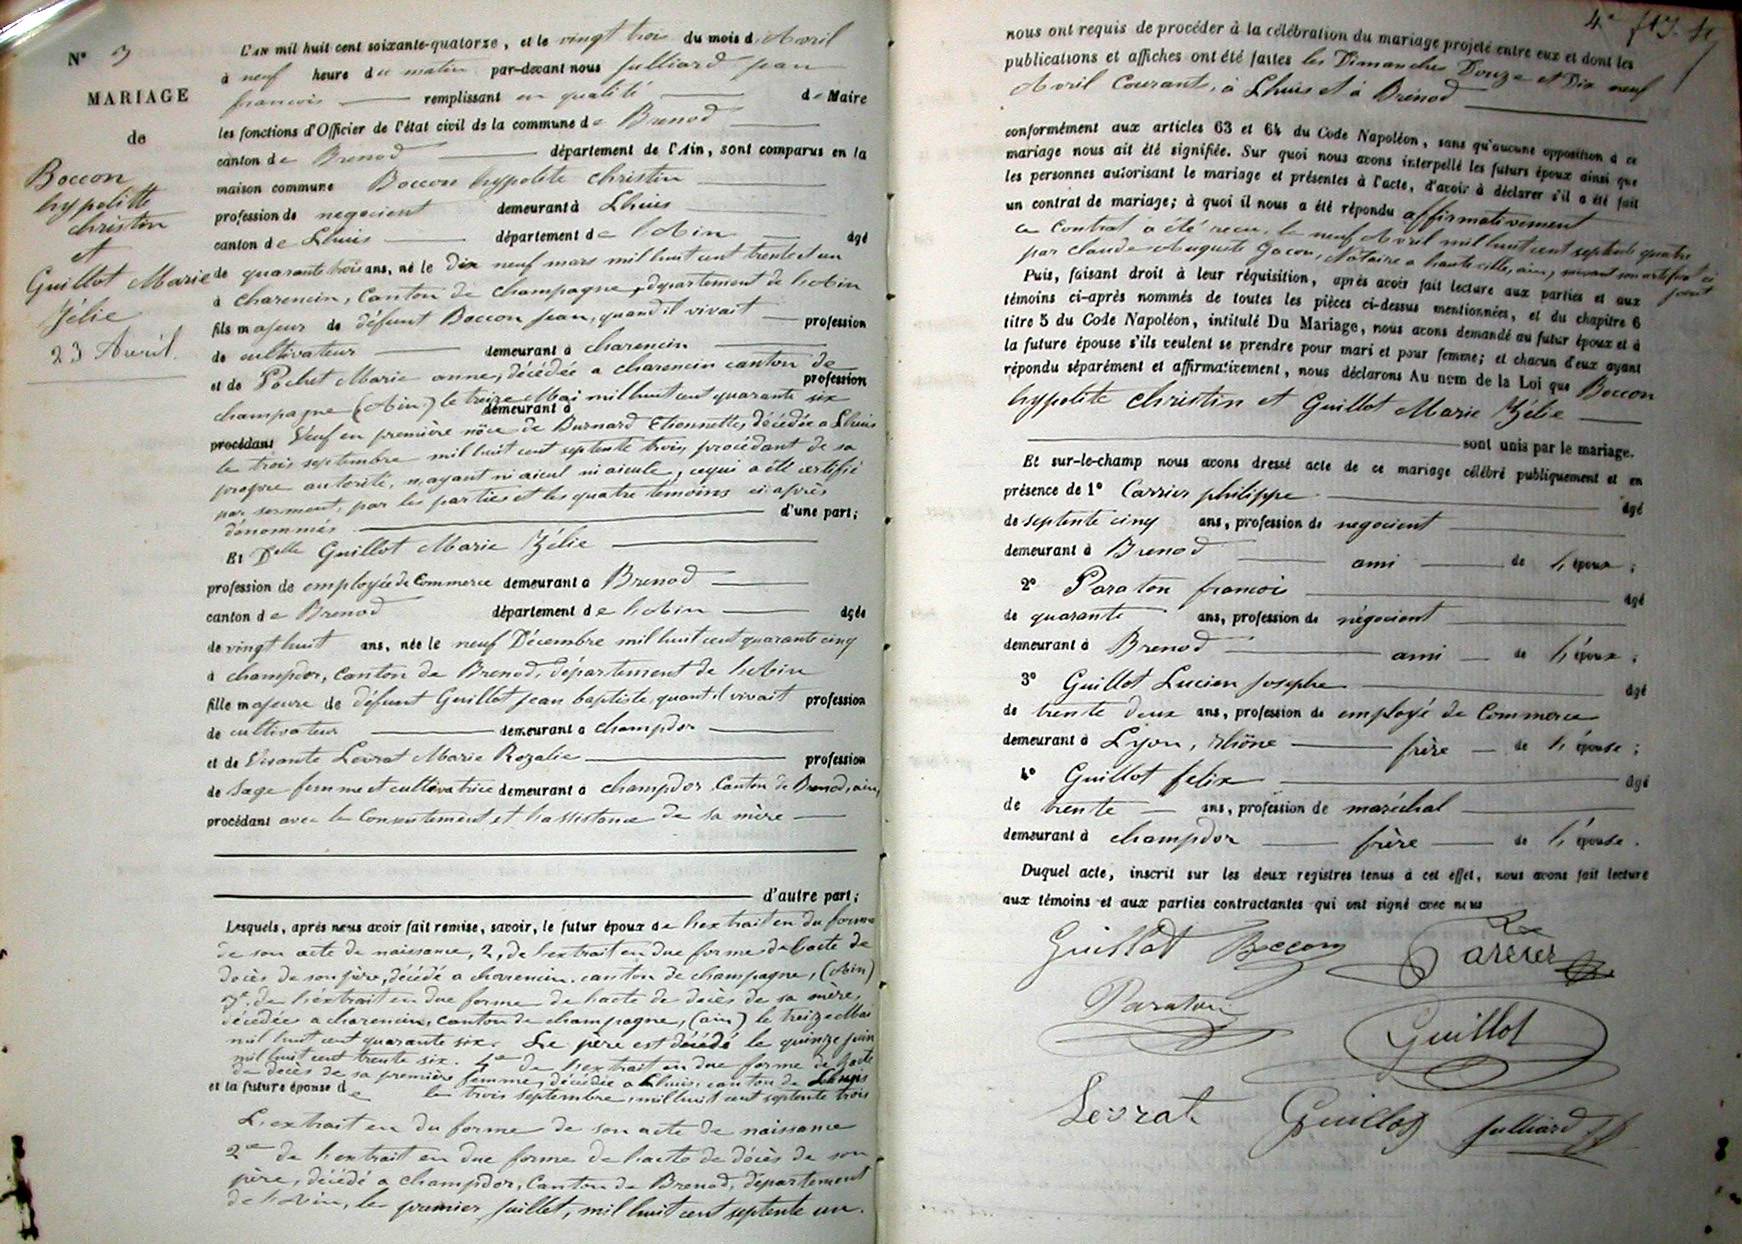 N° 3
MARIAGE
de
Boccon
hypolitte
christin
et
Guillot Marie
Zélie
23 Avril.
L'AN mil huit cent soixante-quatorze, et le vingt trois du mois d'Avril
à neuf heure du matin par-devant nous Julliard Jean
francois remplissant en qualité de Maire
les fonctions d'Officier de l'état civil de la commune de Brenod
canton de Brenod département de l'Ain, sont comparus en la
maison commune Boccon hypolite christin
profession de negocient demeurant à Lhuis
canton de Lhuis département de l'Ain âgé
de quarante trois ans, né le dix neuf mars mil huit cent trente et un
à charencin, Canton de champagne, département de l'Ain
fils majeur de défunt Boccon Jean, quand il vivait profession
de cultivateur demeurant à charencin
et de Pochet Marie anne, décédée a charencin canton de
profession
champagne (Ain) le treize Mai mil huit cent quarante six
demeurant à
procédant Veuf en première nôce de Burnard Etiennette, décédée a Lhuis
le trois septembre mil huit cent septente trois, procédant de sa
propre autorité, n'ayant ni aieul ni aieule, ce qui a été certifié
par serment, par les parties et les quatre témoins ci-après
dénommés d'une part;
Et Delle Guillot Marie Zélie
profession de employée de Commerce demeurant à Brenod
canton de Brenod département de l'Ain âgée
de vingt huit ans, née le neuf Décembre mil huit cent quarante cinq
à champdor, Canton de Brenod, département de l'Ain
fille majeure de défunt Guillot Jean baptiste, quant il vivait profession
de cultivateur demeurant à champdor
et de Vivante Levrat Marie Rozalie profession
de Sage femme et cultivatrice demeurant à champdor Canton de Brenod, ain,
procédant avec le Consentement et l'assistance de sa mère
d'autre part;
Lesquels, après nous avoir fait remise, savoir, le futur époux de l'extrait en du forme
de son acte de naissance, 2, de l'extrait en due forme de l'acte de
décès de son père, décédé a charencin, canton de champagne, (Ain)
3e de l'extrait en due forme de l'acte de décès de sa mère,
décédée a charencin, canton de champagne, (ain) le treize Mai
mil huit cent quarante six. Le père est décédé le quinze juin
mil huit cent trente six. 4e de l'extrait en due forme de l'acte
de décès de sa première femme, décédée a Lhuis, canton de Lhuis
et la future épouse de le trois septembre, mil huit cent septente trois
L'extrait en du forme de son acte de naissance
2e de l'extrait en due forme de l'acte de décès de son
père, décédé a champdor, Canton de Brenod, département
de l'Ain, le premier Juillet, mil huit cent septente un.
nous ont requis de procéder à la célébration du mariage projeté entre eux et dont les
publications et affiches ont été faites les Dimanches Douze et Dix neuf
Avril Courant, à Lhuis et à Brénod
conformément aux articles 63 et 64 du Code Napoléon, sans qu'aucune opposition à ce
mariage nous ait été signifiée. Sur quoi nous avons interpellé les futurs époux ainsi que
les personnes autorisant le mariage et présentes à l'acte, d'avoir à déclarer s'il a été fait
un contrat de mariage; à quoi il nous a été répondu affirmativement
ce Contrat a été recu, le neuf Avril mil huit cent septente quatre
par Claude Auguste Gacon, Notaire a hauteville, ain, suivant son certificat ci
joint
Puis, faisant droit à leur réquisition, après avoir fait lecture aux parties et aux
témoins ci-après nommés de toutes les pièces ci-dessus mentionnées, et du chapitre 6
titre 5 du Code Napoléon, intitulé Du Mariage, nous avons demandé au futur époux et à
la future épouse s'ils veulent se prendre pour mari et pour femme; et chacun d'eux ayant
répondu séparément et affirmativement, nous déclarons Au nom de la Loi que Boccon
hypolite christin et Guillot Marie Zélie
sont unis par le mariage.
Et sur-le-champ nous avons dressé acte de ce mariage célébré publiquement et en
présence de 1° Carrier philippe âgé
de septente cinq ans, profession de negocient
demeurant à Brenod ami de l'époux;
2° Paraton francois âgé
de quarante ans, profession de négocient
demeurant à Brenod ami de l'époux;
3° Guillot Lucien Josephe âgé
de trente deux ans, profession de employé de Commerce
demeurant à Lyon, Rhône frère de l'épouse;
4° Guillot felix âgé
de trente ans, profession de maréchal
demeurant à champdor frère de l'épouse.
Duquel acte, inscrit sur les deux registres tenus à cet effet, nous avons fait lecture
aux témoins et aux parties contractantes qui ont signé avec nous
Guillot Boccon Carrier
Paraton Guillot
Levrat Guillot Julliard